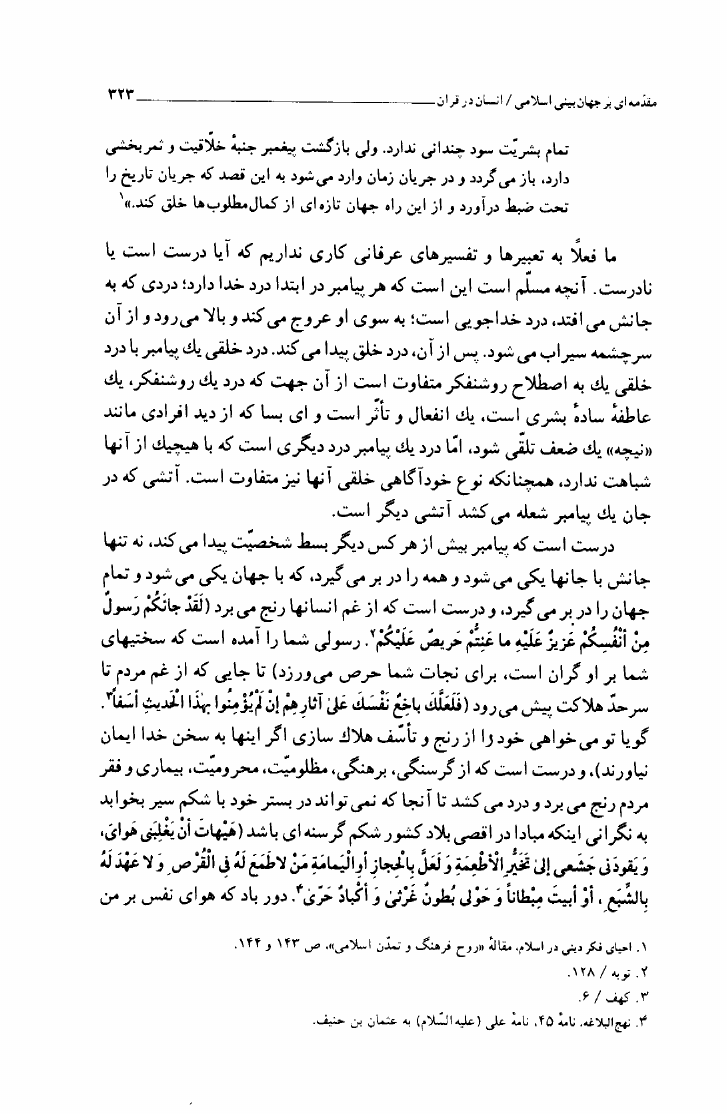 مقدّمه‌ای بر جهان‌بینی اسلامی / انسان در قرآن ۳۲۳
تمام بشریّت سود چندانی ندارد. ولی بازگشت پیغمبر جنبهٔ خلّاقیت و ثمربخشی
دارد، باز می‌گردد و در جریان زمان وارد می‌شود به این قصد که جریان تاریخ را
تحت ضبط درآورد و از این راه جهان تازه‌ای از کمال‌مطلوب‌ها خلق کند.»۱
ما فعلاً به تعبیرها و تفسیرهای عرفانی کاری نداریم که آیا درست است یا
نادرست. آنچه مسلّم است این است که هر پیامبر در ابتدا درد خدا دارد؛ دردی که به
جانش می‌افتد، درد خداجویی است؛ به سوی او عروج می‌کند و بالا می‌رود و از آن
سرچشمه سیراب می‌شود. پس از آن، درد خلق پیدا می‌کند. درد خلقی یك پیامبر با درد
خلقی یك به اصطلاح روشنفکر متفاوت است از آن جهت که درد یك روشنفکر، یك
عاطفهٔ سادهٔ بشری است، یك انفعال و تأثّر است و ای بسا که از دید افرادی مانند
«نیچه» یك ضعف تلقّی شود، امّا درد یك پیامبر درد دیگری است که با هیچیك از آنها
شباهت ندارد، همچنانکه نوع خودآگاهی خلقی آنها نیز متفاوت است. آتشی که در
جان یك پیامبر شعله می‌کشد آتشی دیگر است.
درست است که پیامبر بیش از هر کس دیگر بسط شخصیّت پیدا می‌کند، نه تنها
جانش با جانها یکی می‌شود و همه را در بر می‌گیرد، که با جهان یکی می‌شود و تمام
جهان را در بر می‌گیرد، و درست است که از غم انسانها رنج می‌برد (لَقَدْ جائَکُمْ رَسولٌ
مِنْ أنْفُسِکُمْ عَزیزٌ عَلَیْهِ ما عَنِتُّمْ حَریصٌ عَلَیْکُمْ۲. رسولی شما را آمده است که سختیهای
شما بر او گران است، برای نجات شما حرص می‌ورزد) تا جایی که از غم مردم تا
سرحدّ هلاکت پیش می‌رود (فَلَعَلَّكَ باخِعٌ نَفْسَكَ عَلیٰ آثارِهِمْ إنْ لَمْ یُؤْمِنُوا بِهٰذَا الْحَدیثِ أسَفاً۳.
گویا تو می‌خواهی خود را از رنج و تأسّف هلاك سازی اگر اینها به سخن خدا ایمان
نیاورند)، و درست است که از گرسنگی، برهنگی، مظلومیّت، محرومیّت، بیماری و فقر
مردم رنج می‌برد و درد می‌کشد تا آنجا که نمی‌تواند در بستر خود با شکم سیر بخوابد
به نگرانی اینکه مبادا در اقصی بلاد کشور شکم گرسنه‌ای باشد (هَیْهاتَ أنْ یَغْلِبَنی هَوایَ،
وَ یَقودَنی جَشَعی إلیٰ تَخَیُّرِ الْأطْعِمَةِ وَ لَعَلَّ بِالْحِجازِ أوِ الْیَمامَةِ مَنْ لا طَمَعَ لَهُ فِی الْقُرْصِ وَ لا عَهْدَ لَهُ
بِالشِّبَعِ، أوْ أبیتَ مِبْطاناً وَ حَوْلی بُطونٌ غَرْثیٰ وَ أکْبادٌ حَرّیٰ۴. دور باد که هوای نفس بر من
۱. احیای فکر دینی در اسلام، مقالهٔ «روح فرهنگ و تمدّن اسلامی»، ص ۱۴۳ و ۱۴۴.
۲. توبه / ۱۲۸.
۳. کهف / ۶.
۴. نهج‌البلاغه، نامهٔ ۴۵، نامهٔ علی (علیه‌السّلام) به عثمان بن حنیف.